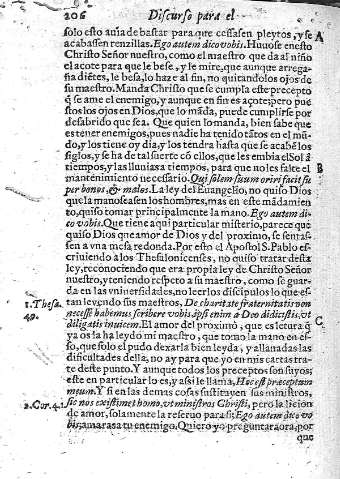 206 Discurso para el
solo esto auia de bastar para que cessasen pleytos, y se A
acabassen renzillas. Ego autem dico vobis. Huuose en esto
Christo Señor nuestro, como el maestro que da al niño
el açote para que le bese, y le mire, que aunque arrega-
ña diẽtes, le besa, lo haze al fin, no quitandolos ojos de
su maestro. Manda Christo que se cumpla este precepto
q̃ se ame el enemigo, y aunque en fin es açote; pero pues
tos los ojos en Dios, que lo mãda, puede cumplirse por
desabrido que sea. Que quien lo manda, bien sabe que
es tener enemigos, pues nadie ha tenido tãtos en el mũ-
do, y los tiene oy dia, y los tendra hasta que se acabẽ los
siglos, y se ha de tal suerte cõ ellos, que les embia el Sol a
tiempos, y las lluuias a tiempos, para que no les falte el B
mantenimiento necessario. Qui solem suum oriri facit su
per bonos, & malos. La ley del Euangelio, no quiso Dios
que la manoseassen los hombres, mas en este mãdamien
to, quiso tomar principalmente la mano. Ego autem di-
co vobis. Que tiene aqui particular misterio, parece que
quiso Dios que el amor de Dios y del proximo, se sentas-
sen a vna mesa redonda. Por esto el Apostol S. Pablo es-
criuiendo a los Thesalonicenses, no quiso tratar desta
ley, reconociendo que era propia ley de Christo Señor
nuestro, y teniendo respeto a su maestro, como se guar-
da en las vniuersidades, no leer los discipulos lo que es-
1. Thesa. tan leyendo sus maestros, De charitate fraternitatis non
4.9. necesse habemus scribere vobis, ipsi enim a Deo didicistis, vt C
diligatis inuicem. El amor del proximo, que es letura q̃
ya os la ha leydo mi maestro, que tomo la mano en es-
so, que solo el pudo dexarla bien leyda, y allanadas las
dificultades della, no ay para que yo en mis cartas tra-
te deste punto. Y aunque todos los preceptos son suyos;
este en particular lo es, y assi le llama, Hoc est præceptum
meum. Y si en las demas cosas sustituyen sus ministros,
2. Cor. 4. sic nos existimet homo, vt ministros Christi, pero la licion
de amor, solamente la reseruo para si: Ego autem dico vo
bis: amaras a tu enemigo. Quiero yo preguntar aora, por
que